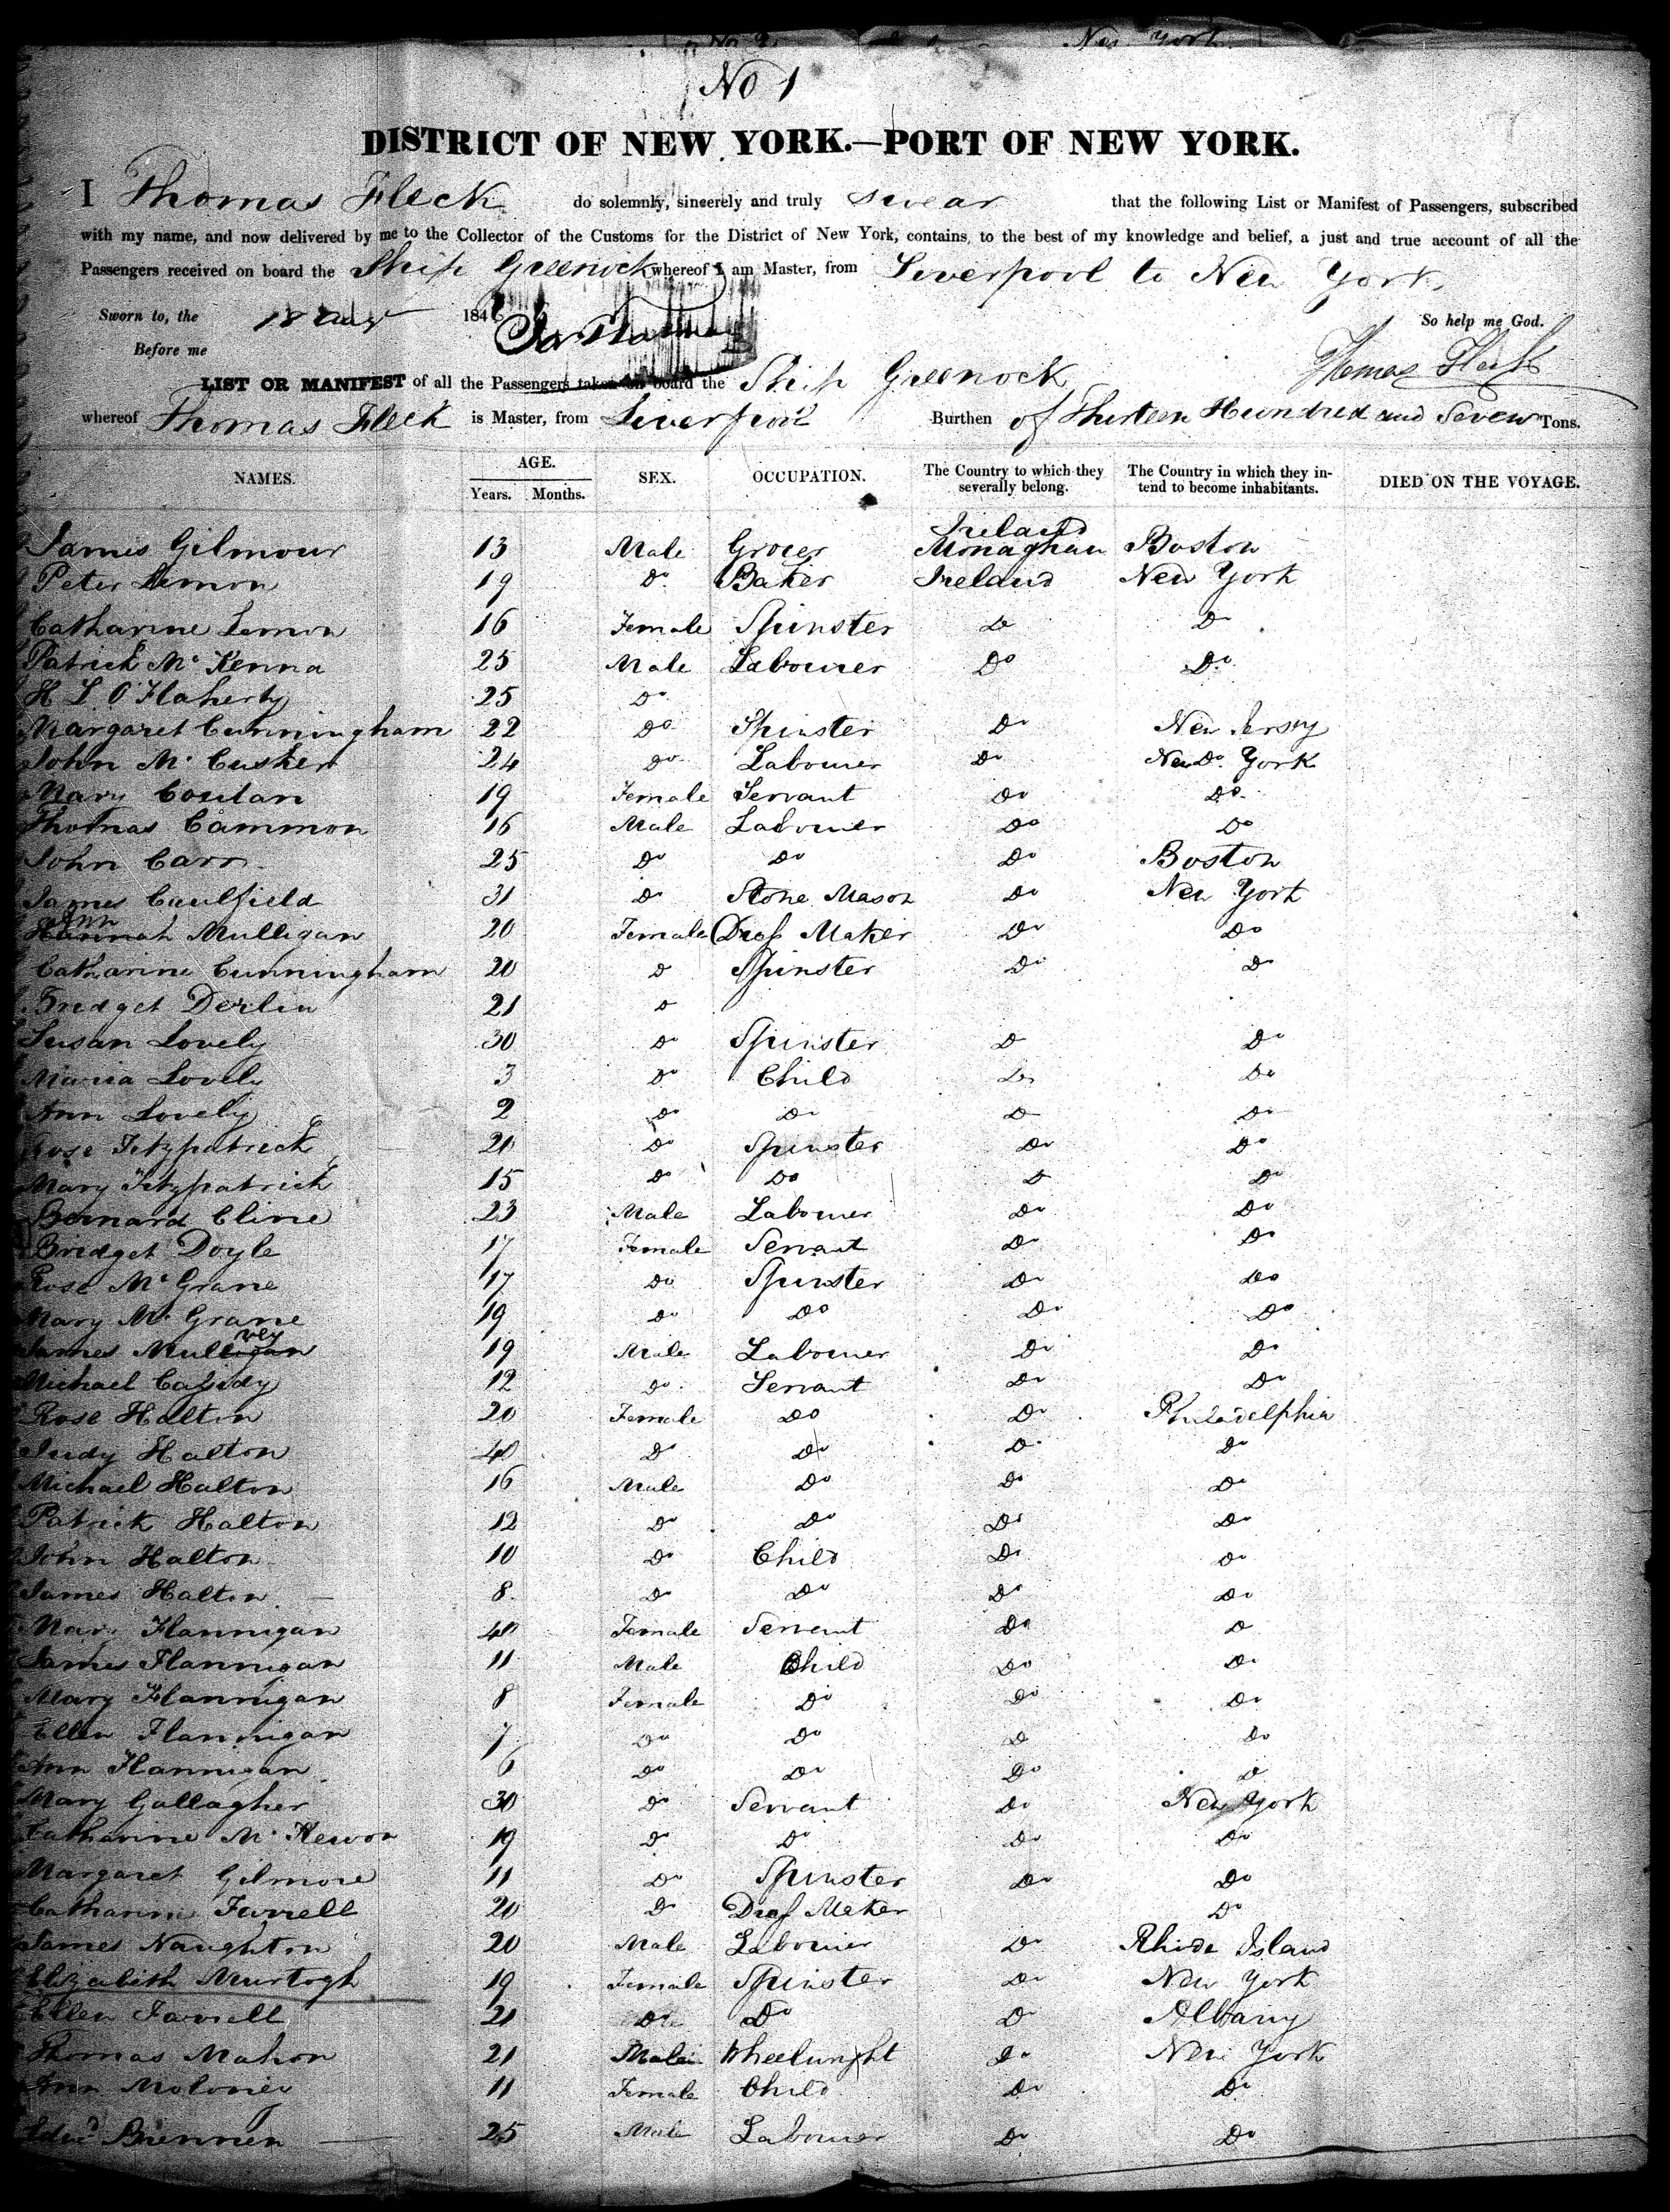 No 1
DISTRICT OF NEW YORK.—PORT OF NEW YORK.
I Thomas Fleck do solemnly, sincerely and truly swear that the following List or Manifest of Passengers, subscribed
with my name, and now delivered by me to the Collector of the Customs for the District of New York, contains, to the best of my knowledge and belief, a just and true account of all the
Passengers received on board the Ship Greenock whereof I am Master, from Liverpool to New York
Sworn to, the 18 184 So help me God.
Before me Thomas Fleck
LIST OR MANIFEST of all the Passengers taken on board the Ship Greenock
whereof Thomas Fleck is Master, from Liverpool Burthen of Thirteen Hundred and Seven Tons.
NAMES. AGE. SEX. OCCUPATION. The Country to which they severally belong. The Country in which they intend to become inhabitants. DIED ON THE VOYAGE.
Years. Months.
James Gilmour 13 Male Grocer Ireland Monaghan Boston
Peter Lemon 19 Do Baker Ireland New York
Catharine Lemon 16 Female Spinster Do Do
Patrick Mc Kenna 25 Male Labourer Do Do
H L O'Flaherty 25 Do
Margaret Cunningham 22 Do Spinster Do New Jersey
John Mc Cusker 24 Do Labourer Do New Do York
Mary Conlan 19 Female Servant Do Do
Thomas Cammon 16 Male Labourer Do Do
John Carr 25 Do Do Do Boston
James Caulfield 31 Do Stone Mason Do New York
Ann
Hannah Mulligan 20 Female Dress Maker Do Do
Catharine Cunningham 20 Do Spinster Do Do
Bridget Derlin 21 Do
Susan Lovely 30 Do Spinster Do Do
Maria Lovely 3 Do Child Do Do
Ann Lovely 2 Do Do Do Do
Rose Fitzpatrick 20 Do Spinster Do Do
Mary Fitzpatrick 15 Do Do Do Do
Bernard Cline 23 Male Labourer Do Do
Bridget Doyle 17 Female Servant Do Do
Rose Mc Grane 17 Do Spinster Do Do
Mary Mc Grane 19 Do Do Do Do
vey
James Mulligan 19 Male Labourer Do Do
Michael Cassidy 12 Do Servant Do Do
Rose Halton 20 Female Do Do Philadelphia
Judy Halton 40 Do Do Do Do
Michael Halton 16 Male Do Do Do
Patrick Halton 12 Do Do Do Do
John Halton 10 Do Child Do Do
James Halton 8 Do Do Do Do
Mary Flannigan 40 Female Servant Do Do
James Flannigan 11 Male Child Do Do
Mary Flannigan 8 Female Do Do Do
Ellen Flannigan 7 Do Do Do Do
Ann Flannigan 6 Do Do Do Do
Mary Gallagher 30 Do Servant Do New York
Catharine Mc Kewon 19 Do Do Do Do
Margaret Gilmore 11 Do Spinster Do Do
Catharine Farrell 20 Do Dress Maker Do
James Naughton 20 Male Labourer Do Rhode Island
Elizabeth Murtogh 19 Female Spinster Do New York
Ellen Farrell 21 Do Do Do Albany
Thomas Mahon 21 Male Wheelwright Do New York
Ann Moloney 11 Female Child Do Do
Edwd Brennen 25 Male Labourer Do Do